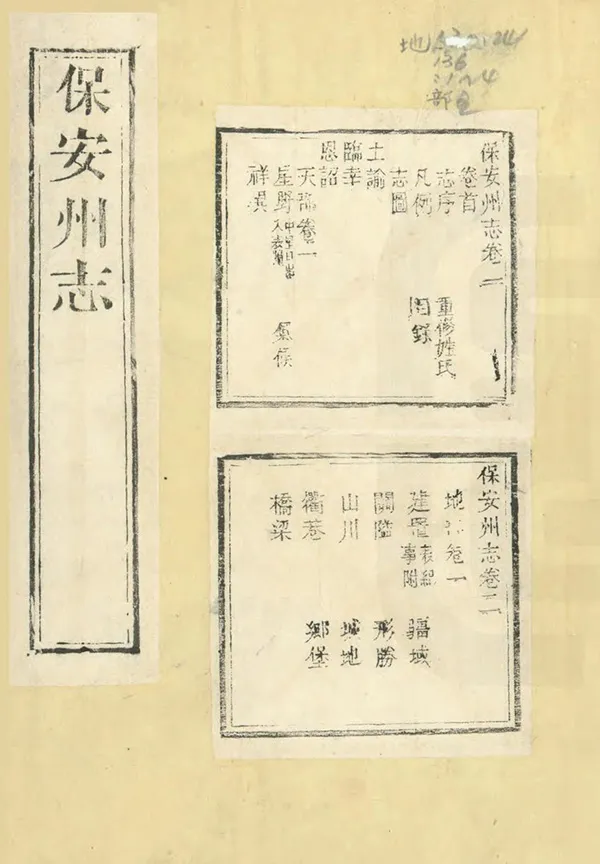 保安州志
地
136
部
保安州志卷一
卷首
志序 重修姓氏
凡例 目錄
志圖
上諭
臨幸
恩詔
天部卷一
星野 氣候
祥異
保安州志卷二
地 卷一
建置表紀事附 疆域
關隘 形勝
山川 城池
衢巷 鄉堡
橋梁